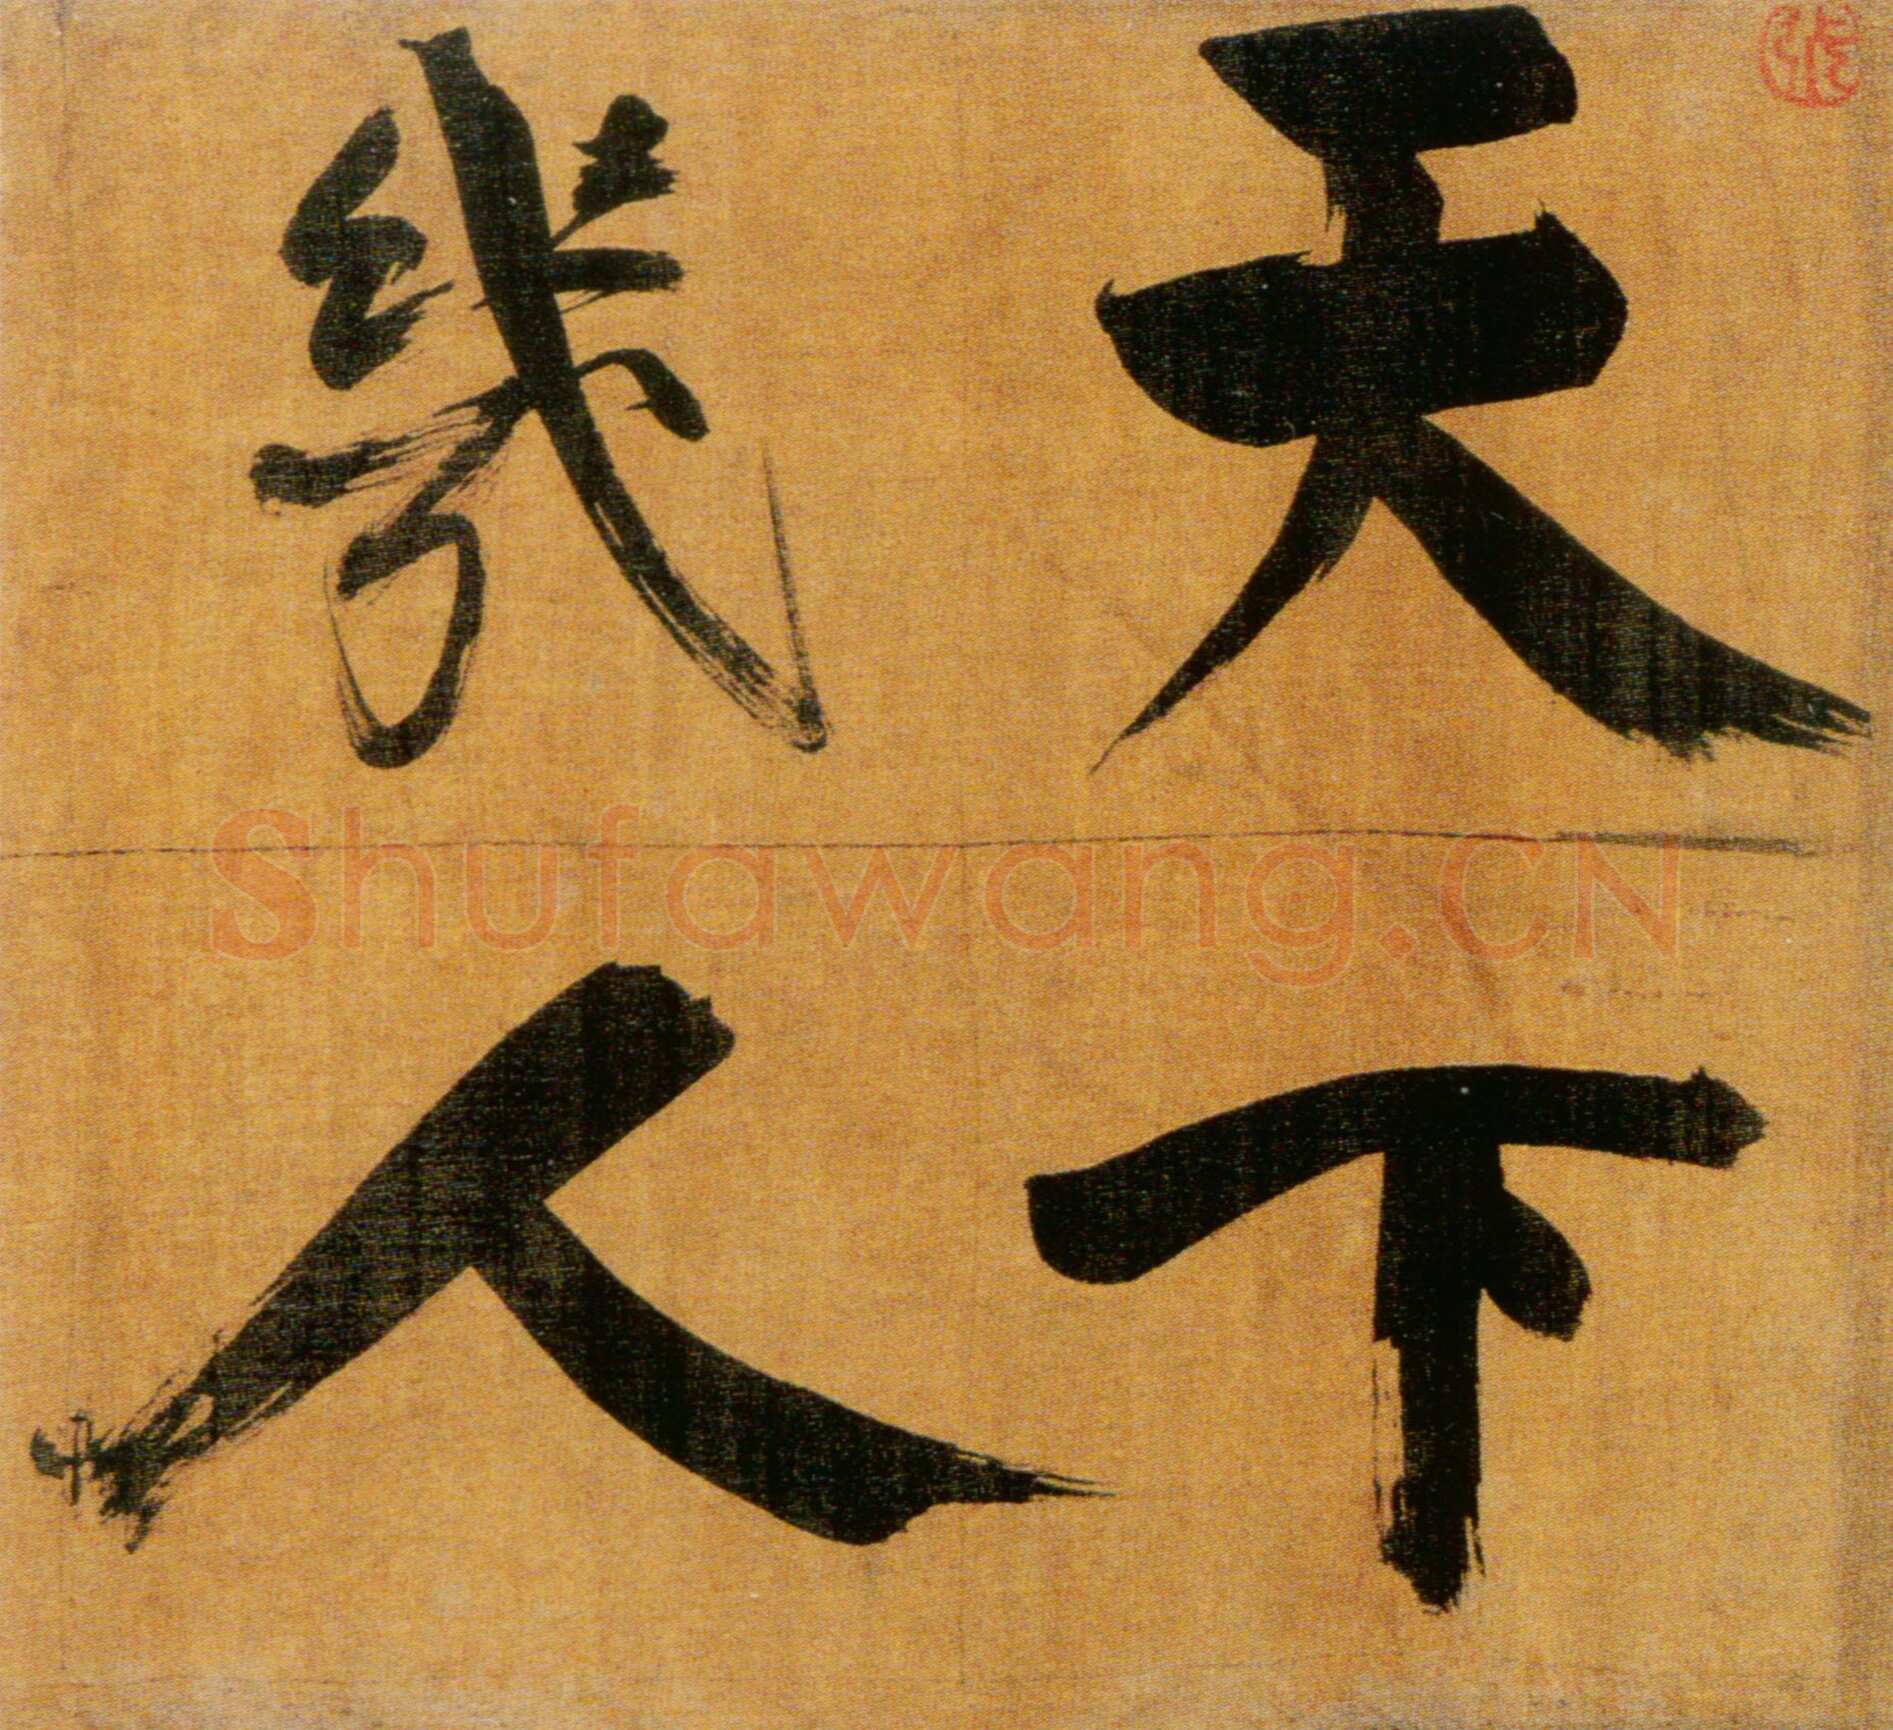 天下
幾人
Shufawang.CN